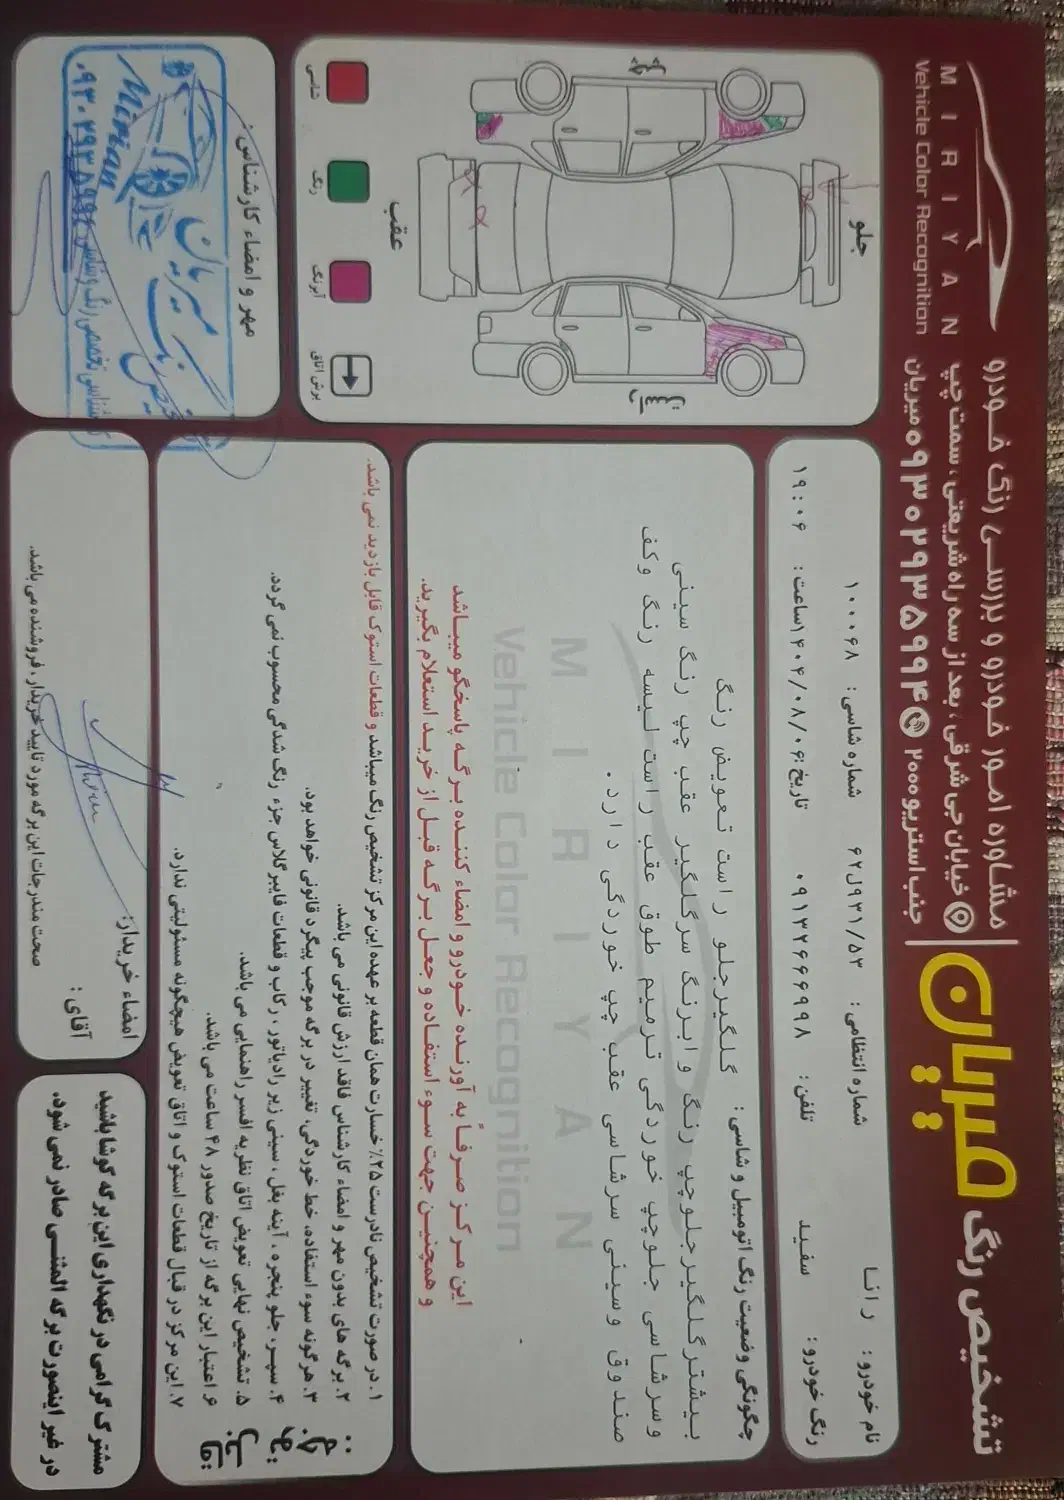 تشخیص رنگ میریان
مشاوره امور خودرو و بررسی رنگ خودرو
خیابان جی شرقی، بعد از سه راه شریعتی، سمت چپ
جنب استریو ۲۰۰۰ ۰۹۳۰۲۹۳۵۹۹۴ میریان
M I R I Y A N
Vehicle Color Recognition
نام خودرو: رانا
شماره انتظامی: ۶۲ل۹۳۱/۵۳
شماره شاسی: ۱۰۰۰۶۸
رنگ خودرو: سفید
تلفن: ۰۹۱۳۲۶۶۶۹۹۸
تاریخ: ۱۴۰۴/۰۸/۰۶
ساعت: ۱۹:۰۶
چگونگی وضعیت رنگ اتومبیل و شاسی: گلگیرجلو راست تعویض رنگ
بیشترگلگیرجلوچپ رنگ وابرنگ سرگلگیر عقب چپ رنگ سینی
وسرشاسی جلوچپ خوردگی ترمیم طوق عقب راست لیسه رنگ وکف
صندوق وسینی سرشاسی عقب چپ خوردگی دارد.
M I R I Y A N
Vehicle Color Recognition
این مرکز صرفاً به آورنده خودرو و امضاء کننده برگه پاسخگو میباشد
و همچنین جهت سوء استفاده و جعل برگه قبل از خرید استعلام بگیرید.
جلو
چپ
راست
عقب
شاسی
رنگ
آبرنگ
برش اتاق
قابل توجه:
۱. در صورت تشخیص نادرست ۲۵٪ خسارت همان قطعه بر عهده این مرکز تشخیص رنگ میباشد و قطعات استوک قابل بازدید نمی باشد.
۲. برگه های بدون مهر و امضاء کارشناس فاقد ارزش قانونی می باشد.
۳. هرگونه سوء استفاده، خط خوردگی، تغییر در برگه موجب پیگرد قانونی خواهد بود.
۴. سپر، جلو پنجره، آینه بغل، سینی زیر رادیاتور، رکاب و قطعات فایبرگلاس جزء رنگ شدگی محسوب نمی گردد.
۵. تشخیص نهایی تعویض اتاق نظر به افسر راهنمایی می باشد.
۶. اعتبار این برگه از تاریخ صدور ۴۸ ساعت می باشد.
۷. این مرکز در قبال قطعات استوک و اتاق تعویض هیچگونه مسئولیتی ندارد.
مهر و امضاء کارشناس:
میریان
Mirian
امضاء خریدار:
آقای:
صحت مندرجات این برگه مورد تایید خریدار، فروشنده می باشد.
مشترک گرامی در نگهداری این برگه کوشا باشید
در غیر اینصورت برگه المثنی صادر نمی شود.